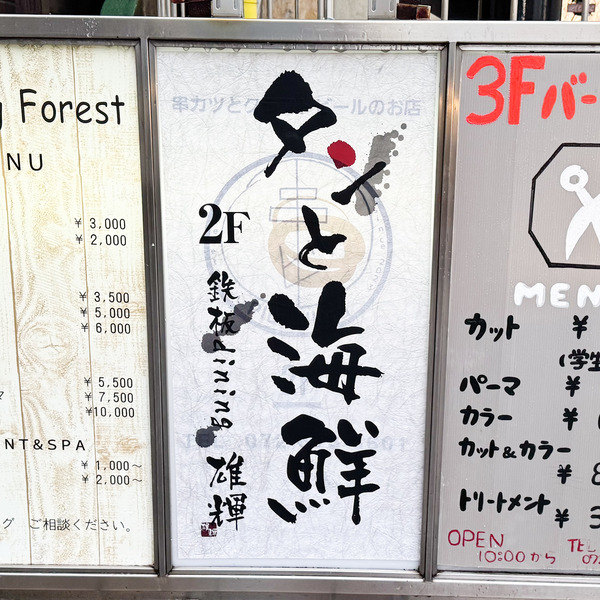 Forest
NU
¥ 3,000
¥ 2,000
¥ 3,500
¥ 5,000
¥ 6,000
¥ 5,500
¥ 7,500
¥10,000
NT&SPA
¥ 1,000~
¥ 2,000~
グ ご相談ください。
タンと海鮮
2F
鉄板dining 雄輝
串カツと
ールのお店
3Fバー
MEN
カット ¥
(学生
パーマ ¥
カラー ¥
カット&カラー
¥ 8
トリートメント ¥ 3
OPEN
10:00から
TEL